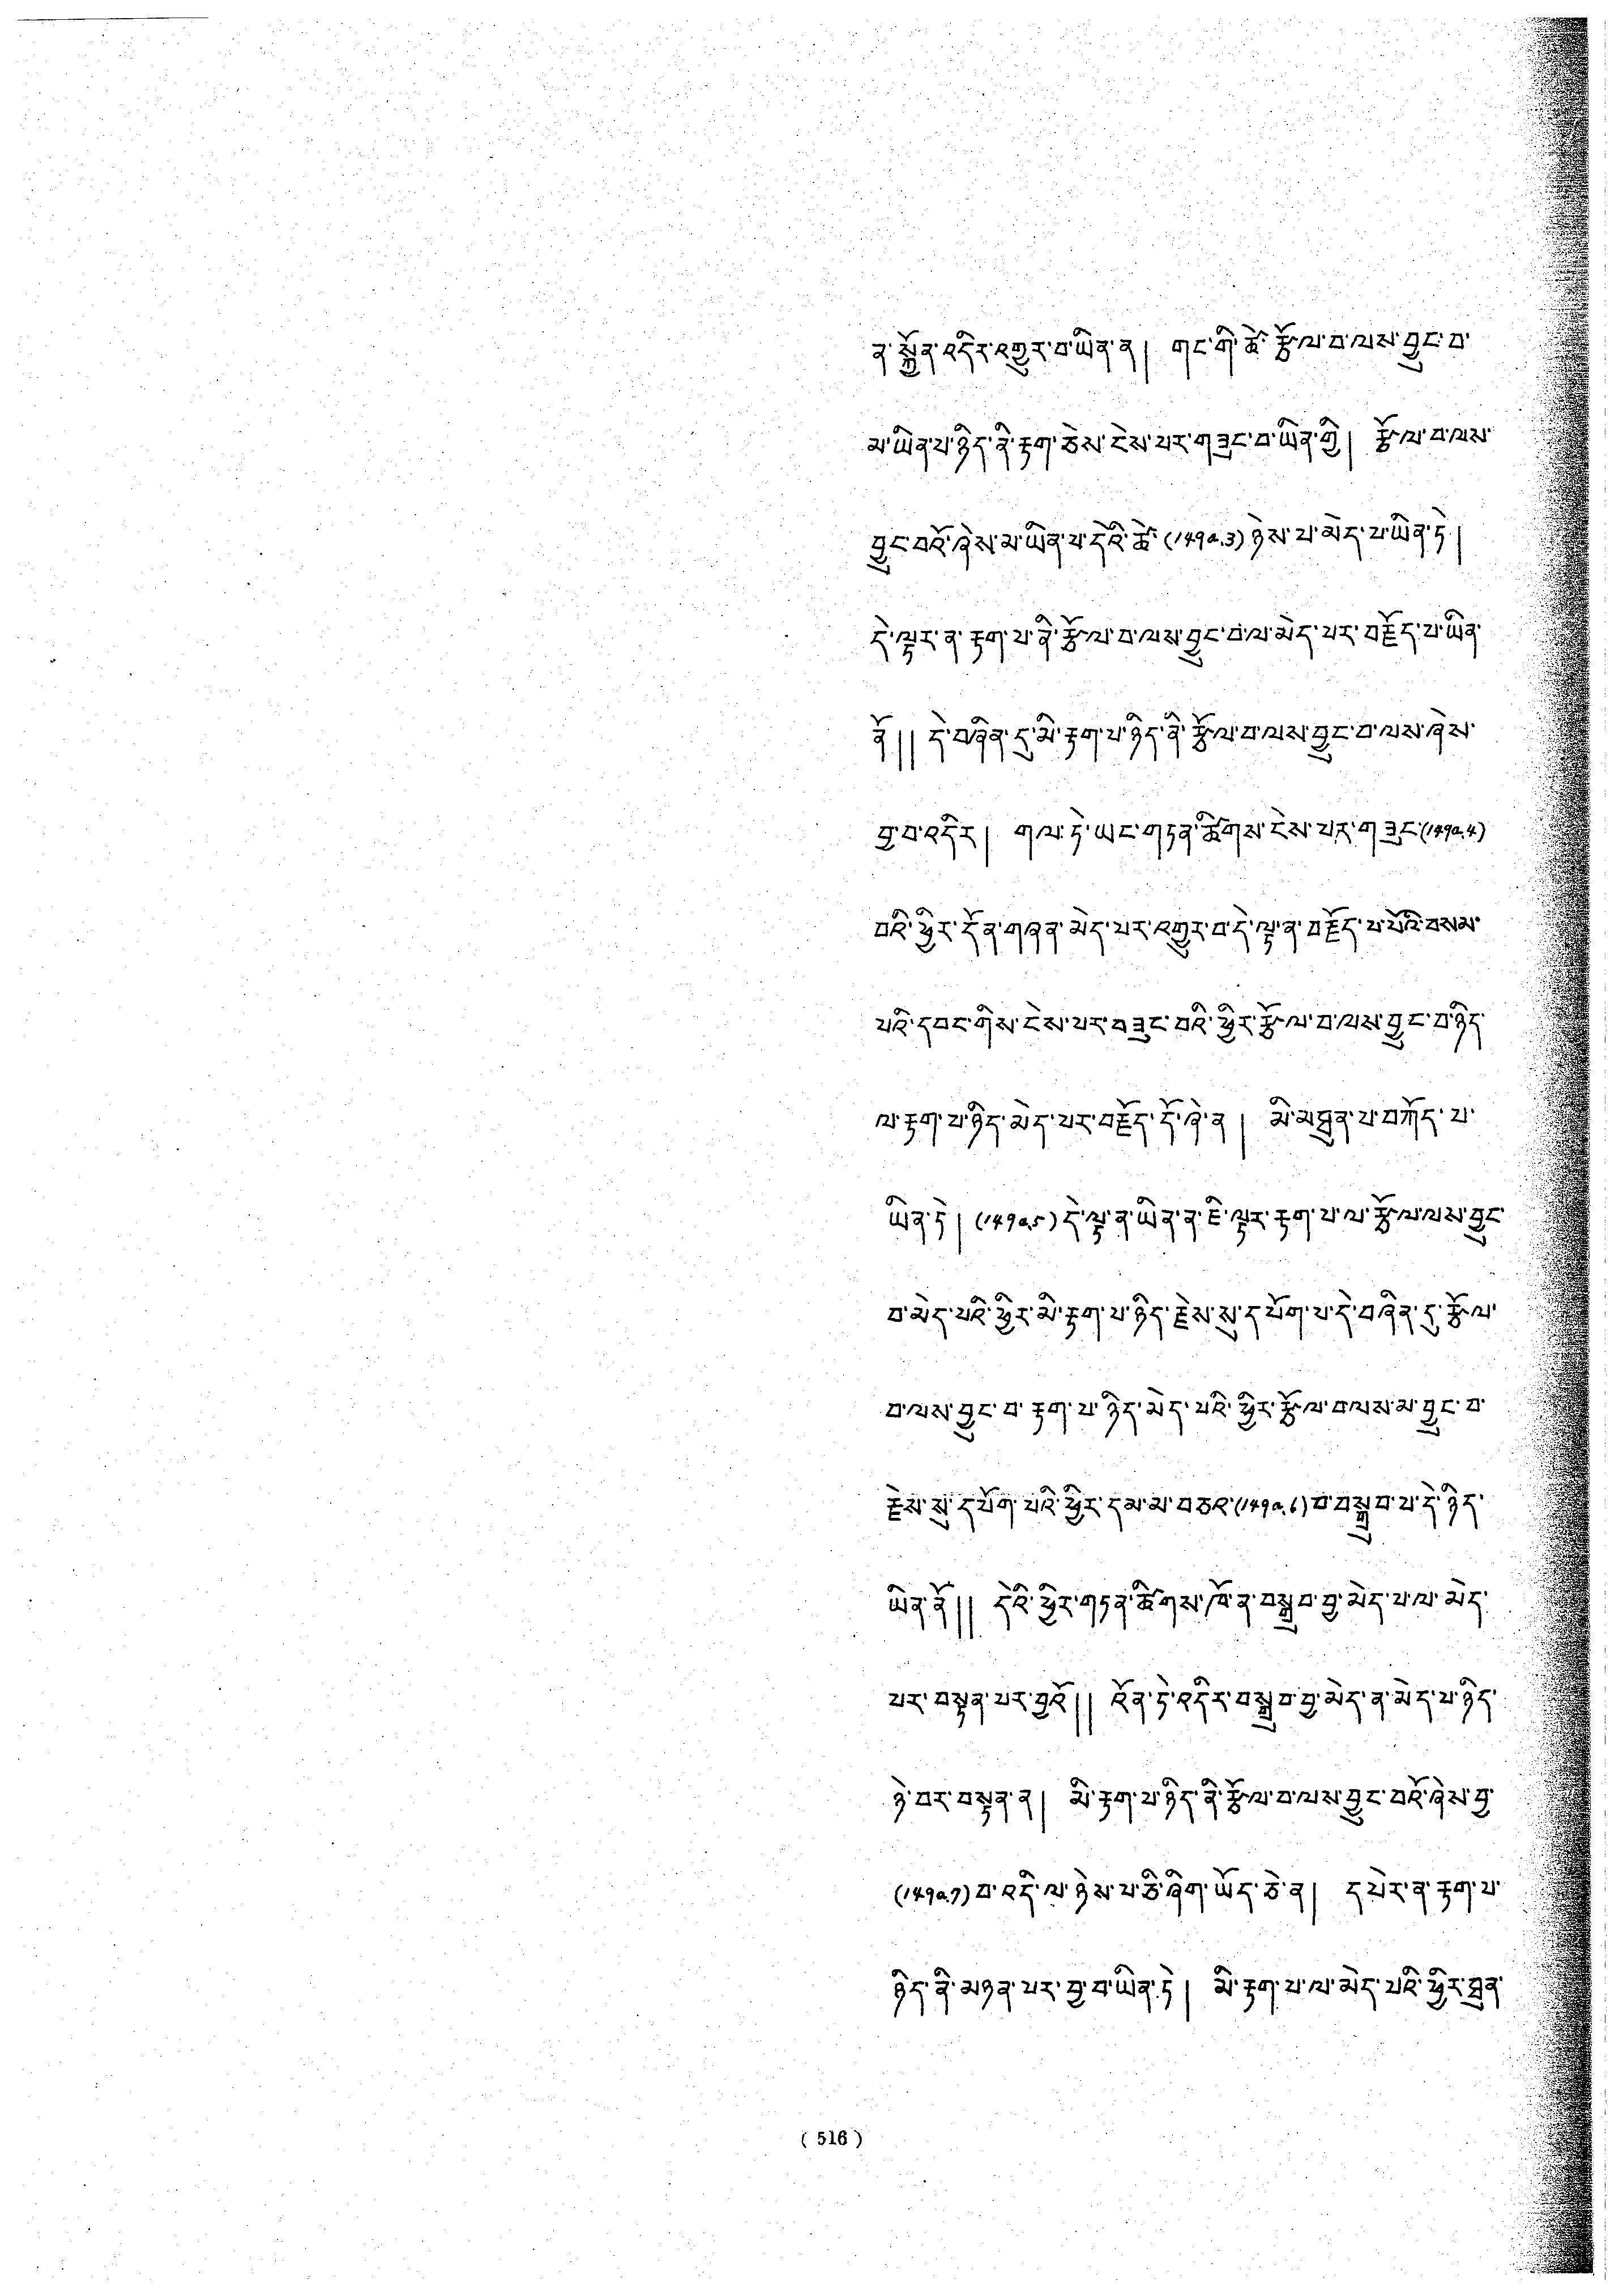 ན་སྐྱོན་འདིར་འགྱུར་བ་ཡིན་ན། གང་གི་ཚེ་རྩོལ་བ་ལས་བྱུང་བ་
མ་ཡིན་པ་ཉིད་ནི་རྟག་ཅེས་ངེས་པར་གཟུང་བ་ཡིན་གྱི། རྩོལ་བ་ལས་
བྱུང་བའོ་ཞེས་མ་ཡིན་པ་དེའི་ཚེ་(149a.3)ཉེས་པ་མེད་པ་ཡིན་ཏེ།
དེ་ལྟར་ན་རྟག་པ་ནི་རྩོལ་བ་ལས་བྱུང་བ་ལ་མེད་པར་བརྗོད་པ་ཡིན་
ནོ།། དེ་བཞིན་དུ་མི་རྟག་པ་ཉིད་ནི་རྩོལ་བ་ལས་བྱུང་བ་ལས་ཞེས་
བྱ་བ་འདིར། གལ་ཏེ་ཡང་གཏན་ཚིགས་ངེས་པར་གཟུང་(149a.4)
བའི་ཕྱིར་དོན་གཞན་མེད་པར་འགྱུར་བ་དེ་ལྟ་ན་བརྗོད་པ་པོའི་བསམ་
པའི་དབང་གིས་ངེས་པར་བཟུང་བའི་ཕྱིར་རྩོལ་བ་ལས་བྱུང་བ་ཉིད་
ལ་རྟག་པ་ཉིད་མེད་པར་བརྗོད་དོ་ཞེ་ན། མི་མཐུན་པ་བཀོད་པ་
ཡིན་ཏེ། (149a.5)དེ་ལྟ་ན་ཡིན་ན་ཇི་ལྟར་རྟག་པ་ལ་རྩོལ་ལས་བྱུང་
བ་མེད་པའི་ཕྱིར་མི་རྟག་པ་ཉིད་རྗེས་སུ་དཔོག་པ་དེ་བཞིན་དུ་རྩོལ་
བ་ལས་བྱུང་བ་རྟག་པ་ཉིད་མེད་པའི་ཕྱིར་རྩོལ་བ་ལས་མ་བྱུང་བ་
རྗེས་སུ་དཔོག་པའི་ཕྱིར་དམ་མ་བཅའ་(149a.6)བ་བསྒྲུབ་པ་དེ་ཉིད་
ཡིན་ནོ།། དེའི་ཕྱིར་གཏན་ཚིགས་ཁོ་ན་བསྒྲུབ་བྱ་མེད་པ་ལ་མེད་
པར་བསྟན་པར་བྱའོ།། འོན་ཏེ་འདིར་བསྒྲུབ་བྱ་མེད་ན་མེད་པ་ཉིད་
ཉེ་བར་བསྟན་ན། མི་རྟག་པ་ཉིད་ནི་རྩོལ་བ་ལས་བྱུང་བའོ་ཞེས་བྱ་
(149a.7)བ་འདི་ལ་ཉེས་པ་ཅི་ཞིག་ཡོད་ཅེ་ན། དཔེར་ན་རྟག་པ་
ཉིད་ནི་མཉན་པར་བྱ་བ་ཡིན་ཏེ། མི་རྟག་པ་ལ་མེད་པའི་ཕྱིར་ཐུན་
( 516 )